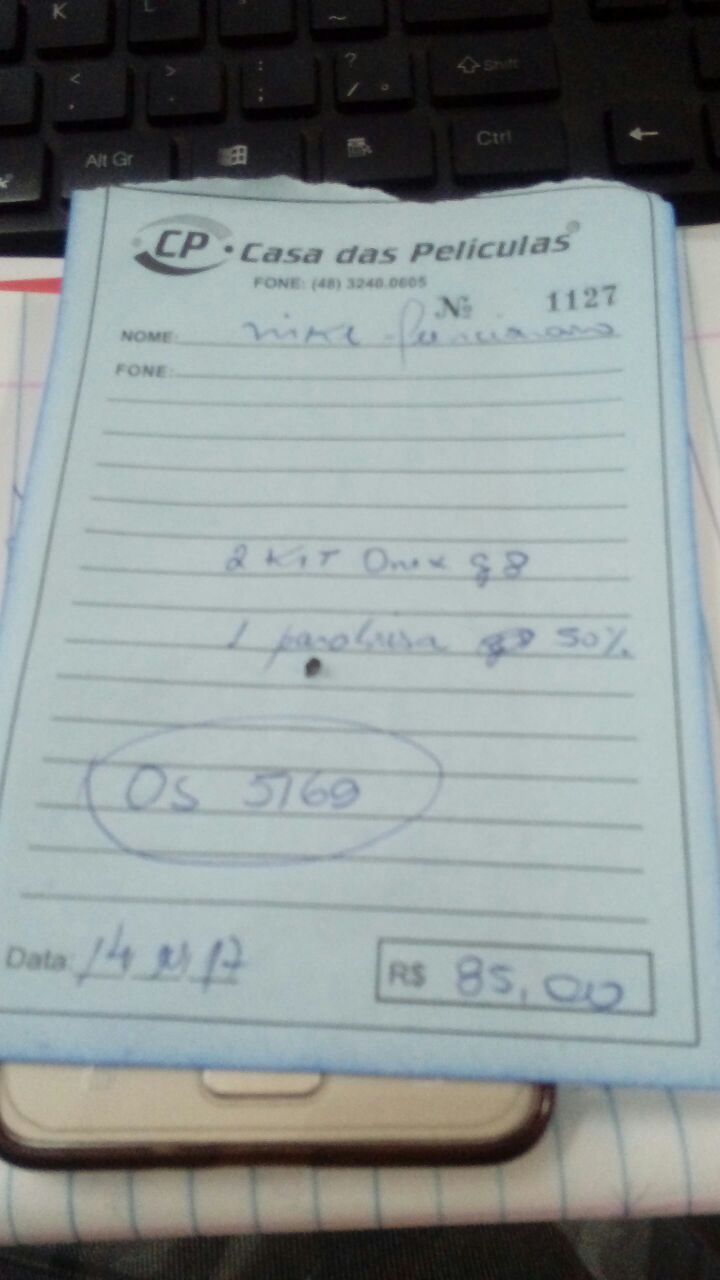 K L ~
< , > . : ; ? / ° Shift
Alt Gr Ctrl ←
CP • Casa das Películas®
FONE: (48) 3240.0605
Nº 1127
NOME:
FONE:
2 KIT Onix g 8
1 parabrisa 50%
OS 5169
Data: 14 17
R$ 85,00